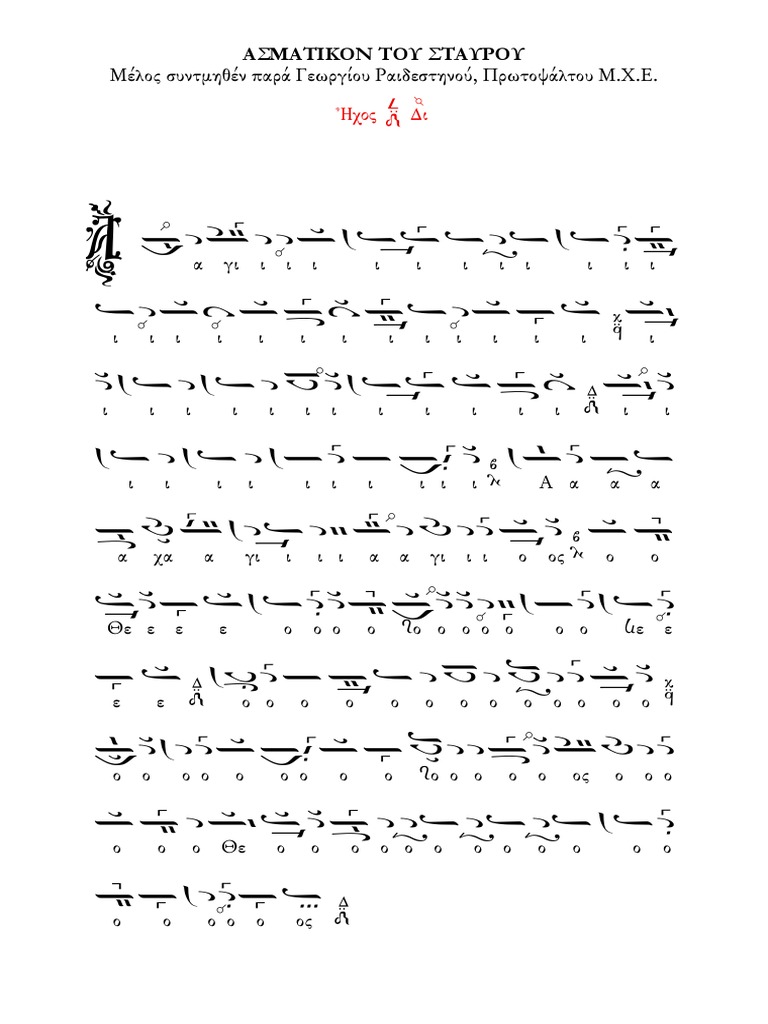 ΑΣΜΑΤΙΚΟΝ ΤΟΥ ΣΤΑΥΡΟΥ
Μέλος συντμηθέν παρά Γεωργίου Ραιδεστηνού, Πρωτοψάλτου Μ.Χ.Ε.
Ἦχος Δι
Α α γι ι ι ι ι ι ι ι ι ι ι ι
ι ι ι ι ι ι ι ι ι ι ι ι ι ι
ι ι ι ι ι ι ι ι ι ι ι ι ι ι
ι ι ι ι ι ι ι ι ι ι Α α α α
α χα α γι ι ι ι α α γι ι ι ο ος ο ο
Θε ε ε ε ο ο ο ο ο ο ο ο ο ο ο ε ε
ε ε ο ο ο ο ο ο ο ο ο ο ο ο ο
ο ο ο ο ο ο ο ο ο ο ο ο ο ο ος ο ο ο
ο ο ο Θε ο ο ο ο ο ο ο ο ο ο ο ο
ο ο ο ο ο ος